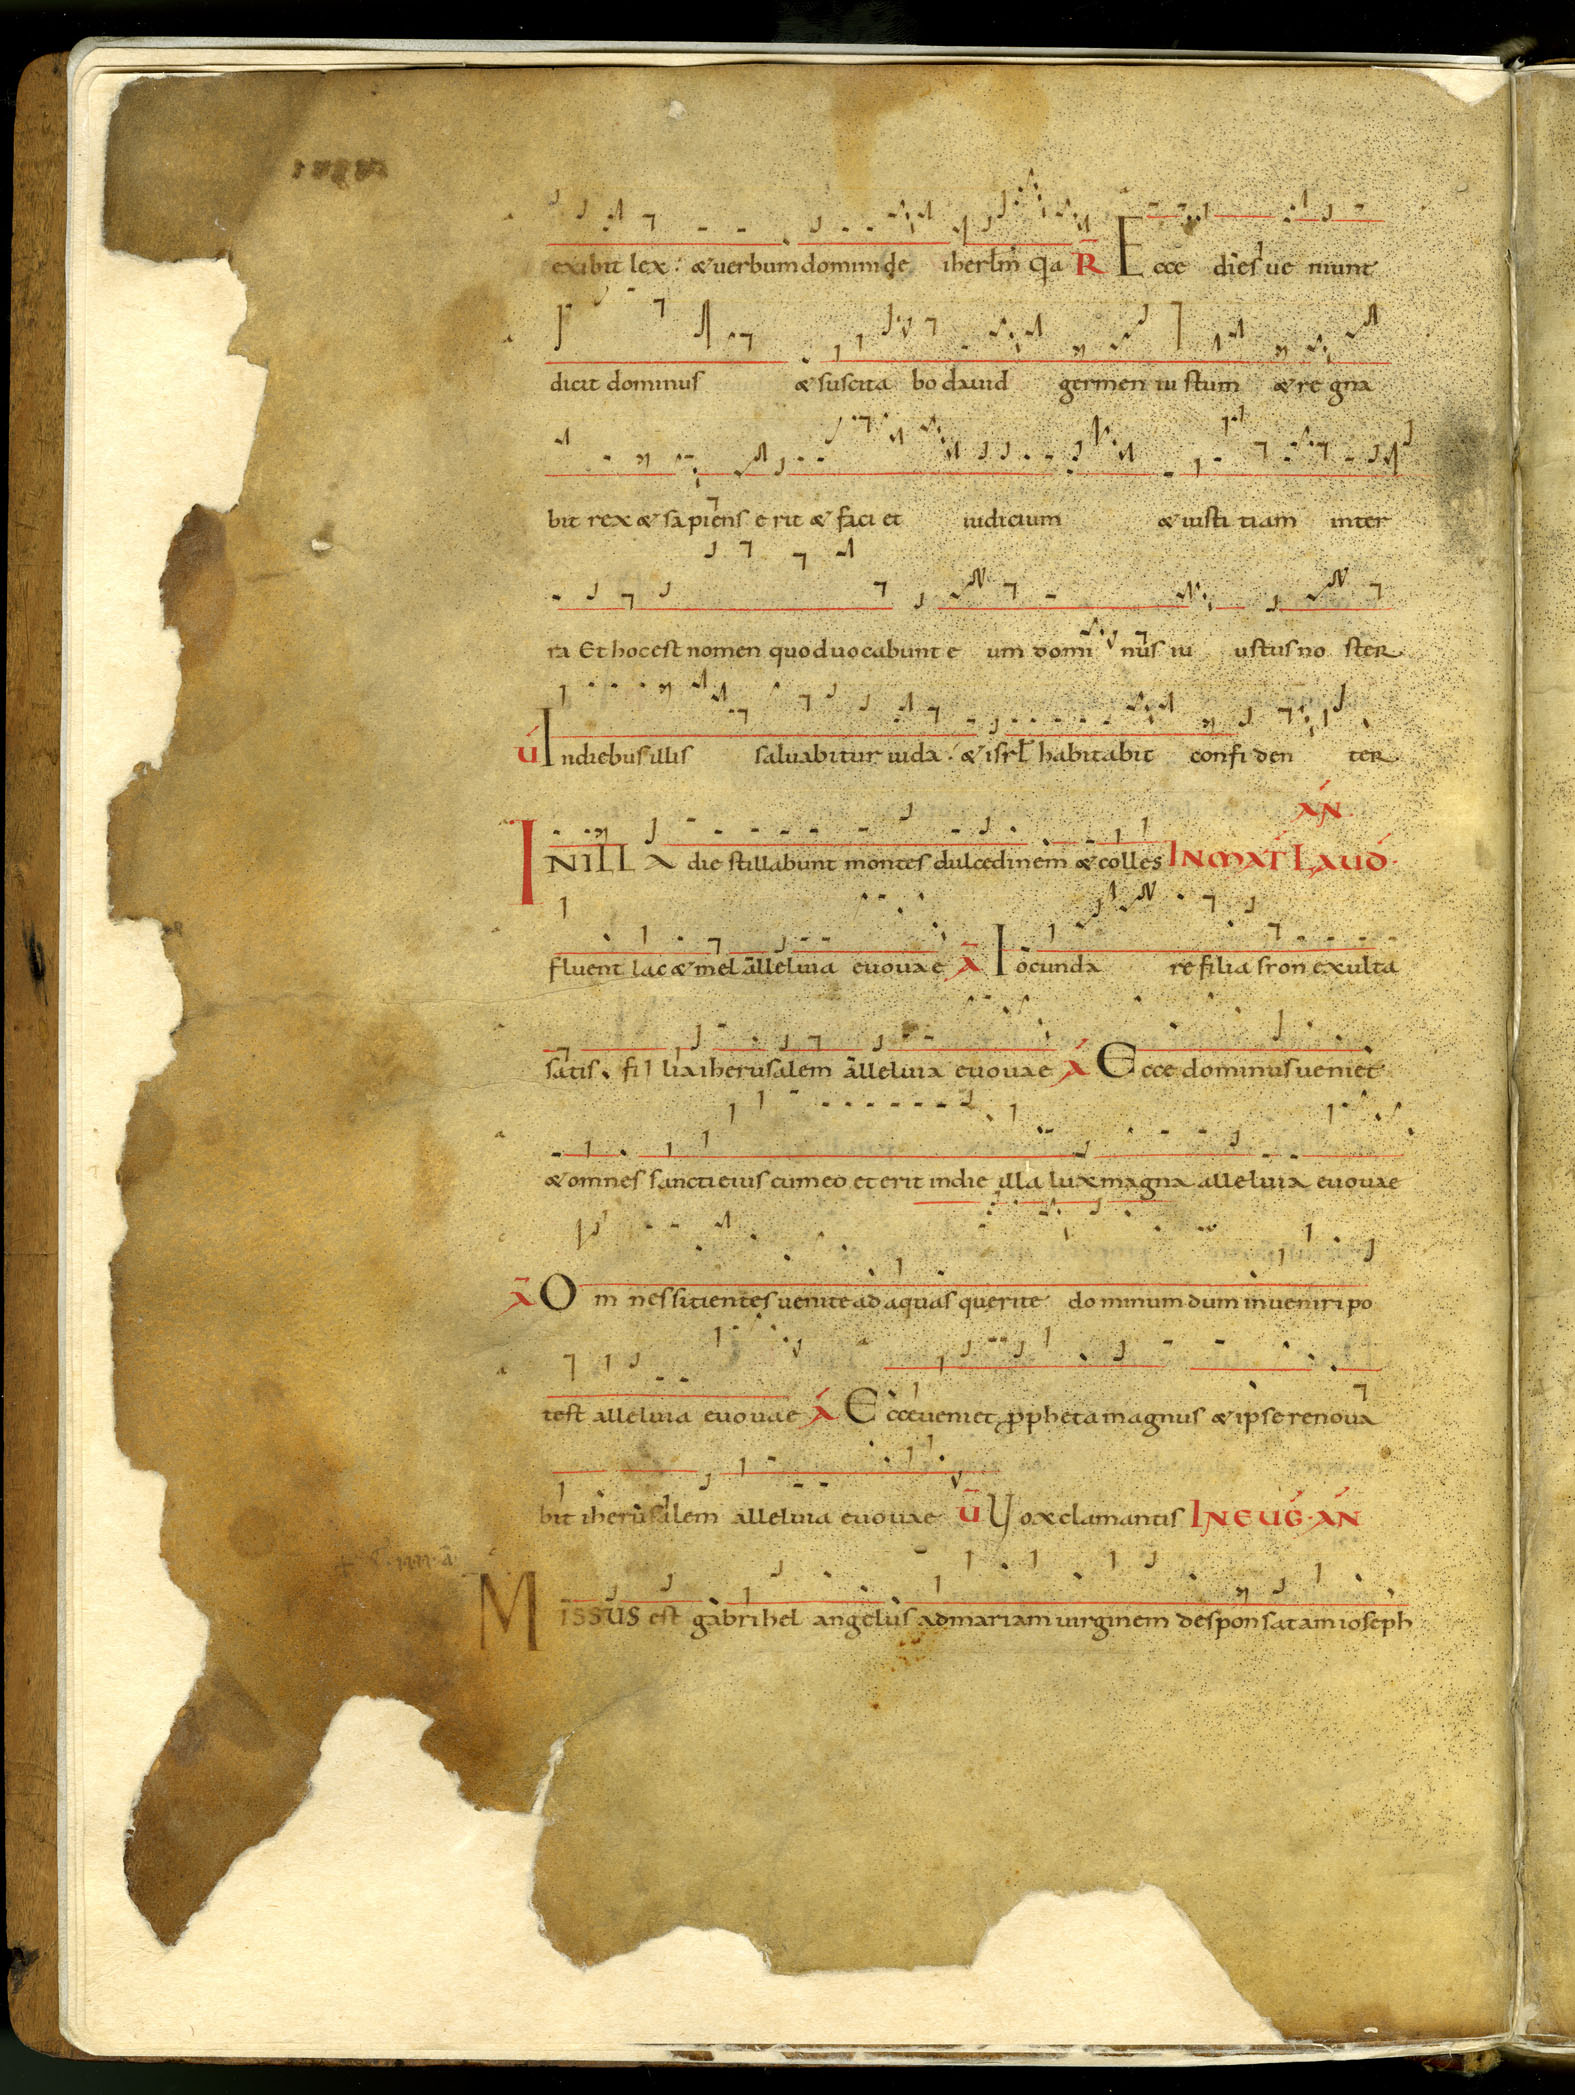 exibit lex: & verbum domini de iherłm q̄a R̄ Ecce dies ve niunt
dicit dominus & suscita bo david germen iu stum & re gna
bit rex & sapiens e rit & faci et iudicium & iusti tiam inter
ra Et hoc est nomen quod vocabunt e um domi nus iu ustus no ster
V́ In diebus illis salvabitur iuda: & isrł habitabit confi den ter
ÁN
IN ILLA die stillabunt montes dulcedinem & colles IN MAT́ LAUD́.
fluent lac & mel alleluia euouae Ā Iocunda re filia sion exulta
satis. fil lia iherusalem alleluia euouae Á Ecce dominus veniet
& omnes sancti eius cum eo et erit in die illa lux magna alleluia euouae
Ā Om nes sitientes venite ad aquas querite dominum dum inveniri po
test alleluia euouae Á Ecce veniet ꝓpheta magnus & ipse renova
bit iherusalem alleluia euouae V̄ Vox clamantis IN EUǴ. ÁN
Missus est gabrihel angelus ad mariam virginem desponsatam ioseph